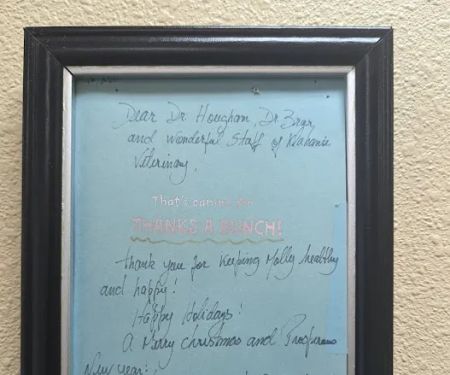 Dear Dr Hougham, Dr
and wonderful staff of Klahanie
Veterinary,
That's canine for
THANKS A BUNCH!
thank you for keeping Molly healthy
and happy!
Happy Holidays!
A Merry christmas and Prosperous
New year!